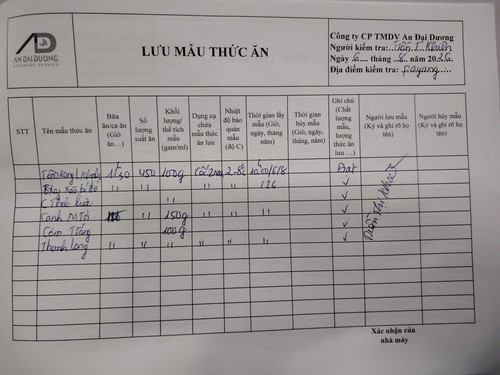 AN DAI DUONG
CATERING SERVICE
LƯU MẪU THỨC ĂN
Công ty CP TMDV An Đại Dương
Người kiểm tra: Trần T. Khuyên
Ngày 6 tháng 8 năm 2026
Địa điểm kiểm tra:
STT
Tên mẫu thức ăn
Bữa ăn/ca ăn (Giờ ăn…)
Số lượng suất ăn
Khối lượng/ thể tích mẫu (gam/ml)
Dụng cụ chứa mẫu thức ăn lưu
Nhiệt độ bảo quản mẫu (độ C)
Thời gian lấy mẫu (Giờ, ngày, tháng, năm)
Thời gian hủy mẫu (Giờ, ngày, tháng, năm)
Ghi chú (Chất lượng mẫu, lượng thức ăn lưu …)
Người lưu mẫu (Ký và ghi rõ họ tên)
Người hủy mẫu (Ký và ghi rõ họ tên)
11h30 450 100g 2-8c Đạt
" " " " " 126 ✓
" ✓
Canh " 150g " " ✓
Cơm Trắng 100g ✓
Thanh long " " " " " ✓
Xác nhận của
nhà máy